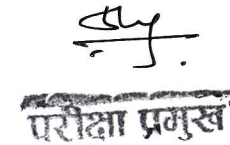 परीक्षा प्रमुख